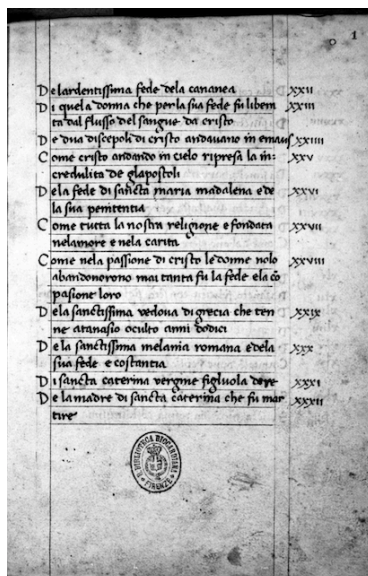 1
D elardentissima fede dela cananea xxii
D i quela donna che per la sua fede fu libera xxiii
ta dal flusso del sangue da cristo
D e dua discepoli di cristo andavano in emaus xxiiii
C ome cristo andando in cielo ripresa la in- xxv
credulita de glapostoli
D e la fede di sancta maria madalena e de xxvi
la sua penitentia
C ome tutta la nostra religione e fondata xxvii
nelamore e nela carita
C ome nela passione di cristo le donne nolo xxviii
abandonorono mai tanta fu la fede ela co
pasione loro
D ela sanctissima vedova di grecia che ten xxix
ne atanasio oculto anni dodici
D e la sanctissima melania romana e dela xxx
sua fede e costantia
D i sancta caterina vergine figluola xxxi
D e la madre di sancta caterina che fu mar xxxii
tire
R. BIBLIOTECA RICCARDIANA
FIRENZE